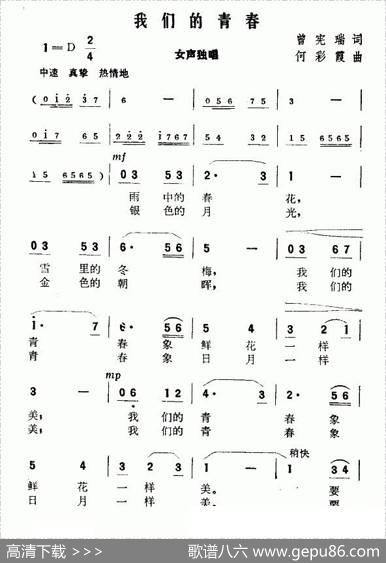 我们的青春
1=D 2/4
女声独唱
曾宪瑞 词
何彩霞 曲
中速 真挚 热情地
(0 1 2 3 7 6 - 0 5 6 7 5 3 -
mf
1 5 6 5 6 5) 0 3 5 3 2· 3 1 -
雨中的春花，
银色的月光，
0 3 5 3 6· 5 6 5 - 0 3 6 7
雪里的冬梅，我们的
金色的朝晖，我们的
1· 7 6· 5 6 5 4 3 2 1
青春象鲜花一样
青春象日月一样
mp
3 - 0 6 1 2 4· 3 0 5 6
美；我们的青春象
美；我们的青春象
稍快
5 4 3 2 3 1 - 1 3 4
鲜花一样美。要
日月一样美。要
高清下载 >>>
歌谱八六 www.gepu86.com